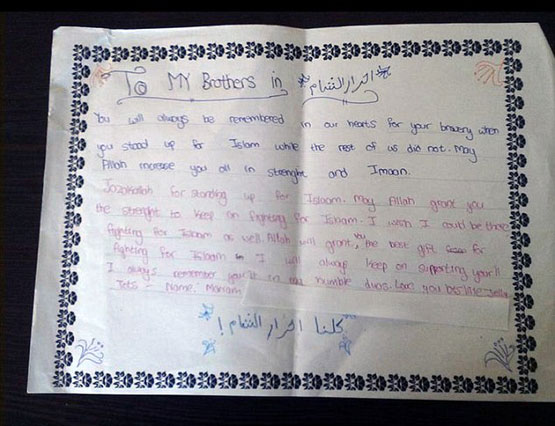 To MY Brothers in احرار الشام
You will always be remembered in our hearts for your bravery when
you stood up for Islam while the rest of us did not. May
Allah increase you all in strenght and Imaan.
Jazakallah for standing up for Islaam. May Allah grant you
the strenght to keep on fighting for Islaam. I wish I could be there
fighting for Islaam as well. Allah will grant you the best gift for
fighting for Islaam I will always keep on supporting you!!
I always remember you in humble duas. Love you
Name: Mariam
كلنا احرار الشام!